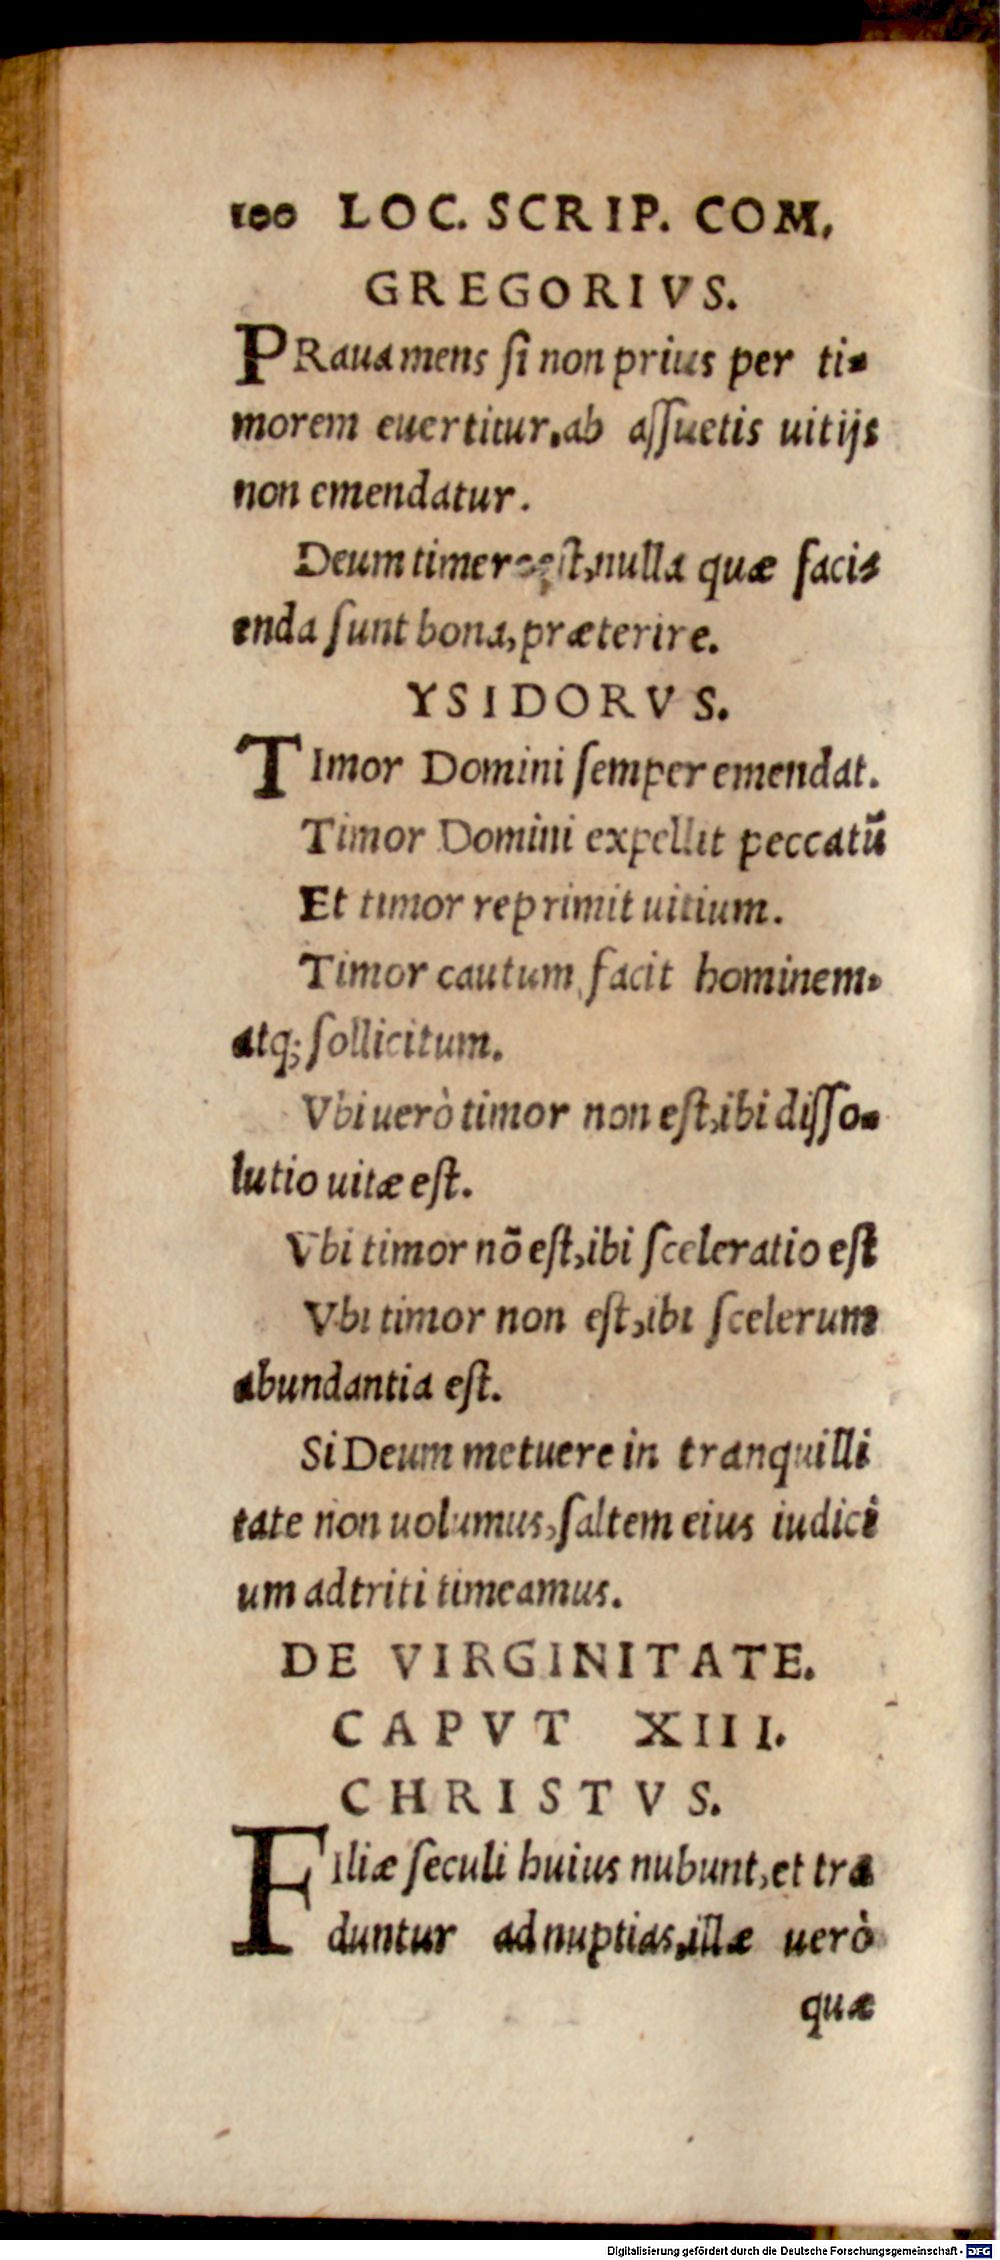 100 LOC. SCRIP. COM.
GREGORIVS.
PRaua mens ſi non prius per ti-
morem euertitur, ab aſſuetis uitijs
non emendatur.
Deum timere est, nulla quæ faci-
enda ſunt bona, præterire.
YSIDORVS.
TImor Domini ſemper emendat.
Timor Domini expellit peccatũ
Et timor reprimit uitium.
Timor cautum facit hominem,
atq; ſollicitum.
Vbi uerò timor non eſt, ibi diſſo-
lutio uitæ eſt.
Vbi timor nõ eſt, ibi ſceleratio eſt
Vbi timor non eſt, ibi ſcelerum
abundantia eſt.
Si Deum metuere in tranquilli
tate non uolumus, ſaltem eius iudici
um adtriti timeamus.
DE VIRGINITATE.
CAPVT XIII.
CHRISTVS.
FIliæ ſeculi huius nubunt, et tra
duntur ad nuptias, illæ uerò
quæ
Digitalisierung gefördert durch die Deutsche Forschungsgemeinschaft - DFG